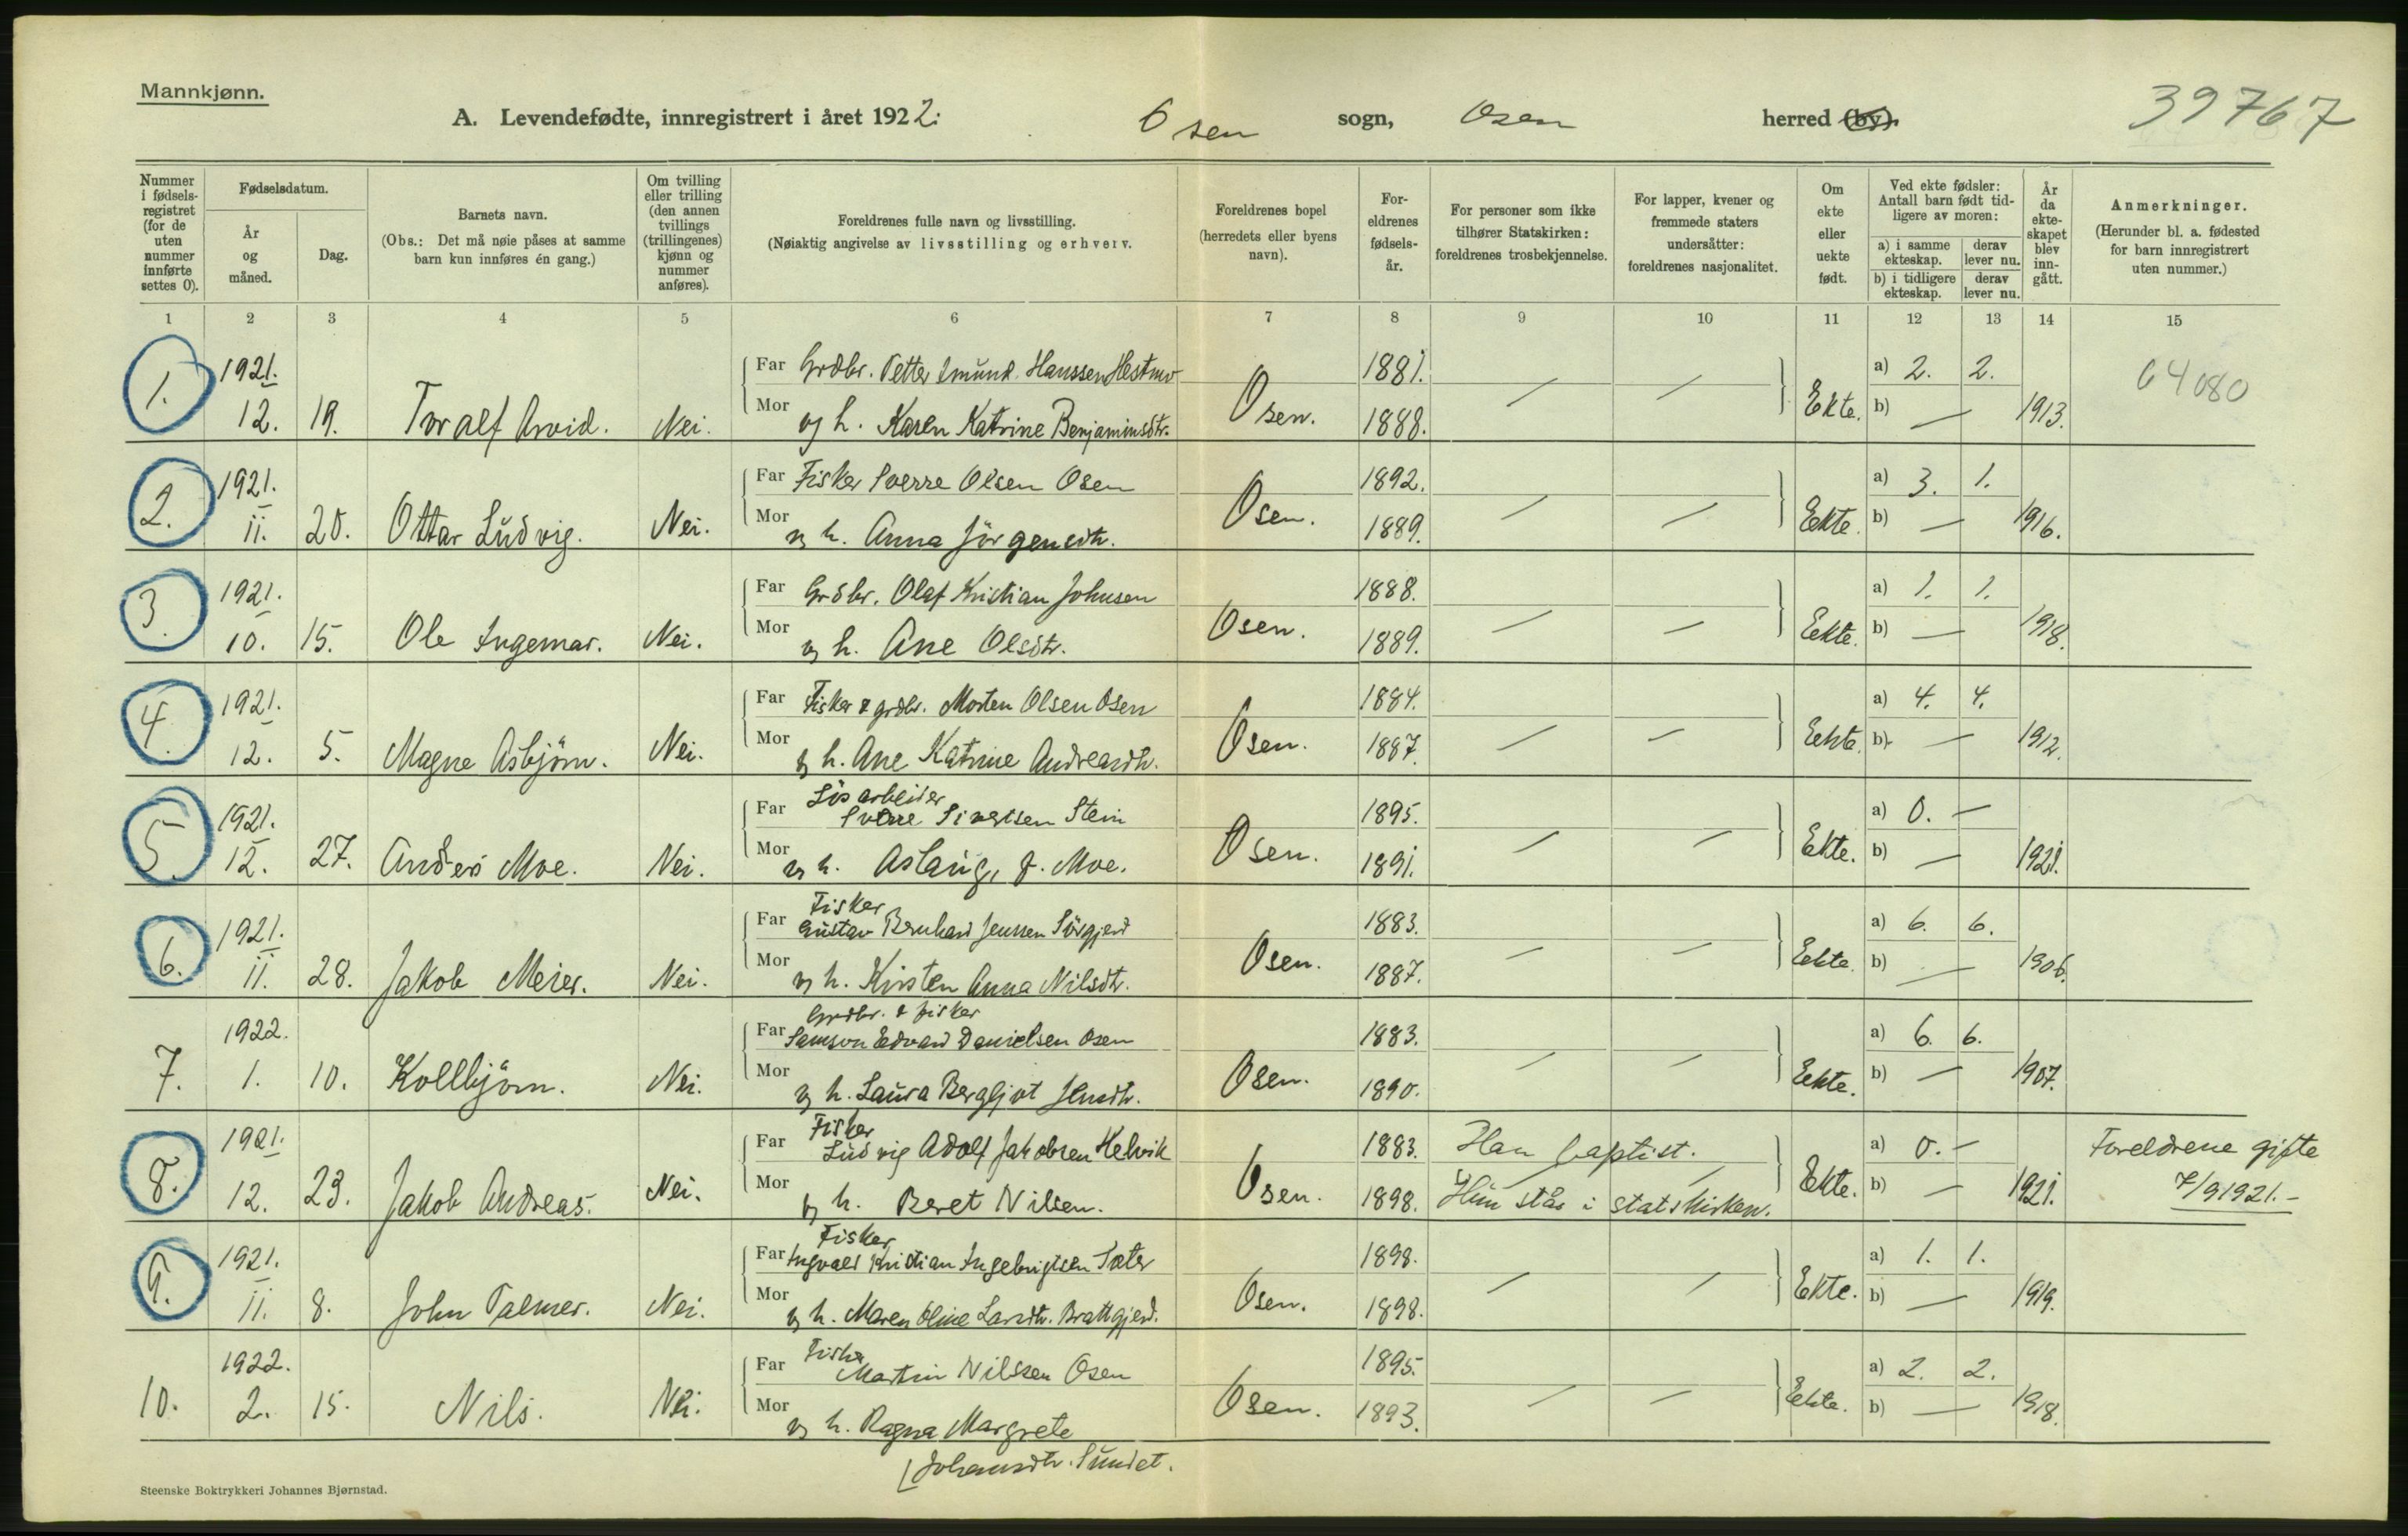 Mannkjønn.
A. Levendefødte, innregistrert i året 1922. Osen sogn, Osen herred (by). 39767
Nummer i fødselsregistret (for de uten nummer innførte settes 0).
Fødselsdatum.
År og måned.
Dag.
Barnets navn.
(Obs.: Det må nøie påses at samme barn kun innføres én gang.)
Om tvilling eller trilling (den annen tvillings (trillingenes) kjønn og nummer anføres).
Foreldrenes fulle navn og livsstilling.
(Nøiaktig angivelse av livsstilling og erhverv.
Foreldrenes bopel (herredets eller byens navn).
Foreldrenes fødselsår.
For personer som ikke tilhører Statskirken: foreldrenes trosbekjennelse.
For lapper, kvener og fremmede staters undersåtter: foreldrenes nasjonalitet.
Om ekte eller uekte født.
Ved ekte fødsler: Antall barn født tidligere av moren:
a) i samme ekteskap. derav lever nu.
b) i tidligere ekteskap. derav lever nu.
År da ekteskapet blev inngått.
Anmerkninger.
(Herunder bl. a. fødested for barn innregistrert uten nummer.)
1 2 3 4 5 6 7 8 9 10 11 12 13 14 15
1. 1921. 12. 19. Toralf Arvid. Nei. Osen. Ekte. 1913. 64080
Far Grdbr. Petter Hanssen 1881. a) 2. 2.
Mor og h. Karen Katrine Benjaminsdtr. 1888. b) —
2. 1921. 11. 20. Ottar Ludvig. Nei. Osen. Eekte. 1916.
Far Fisker Sverre Olsen Osen 1892. a) 3. 1.
Mor og h. Anna Jörgensdtr. 1889. b) —
3. 1921. 10. 15. Ole Ingemar. Nei. Osen. Eekte. 1918.
Far Grdbr. Olaf Kristian Johnsen 1888. a) 1. 1.
Mor og h. Ane Olsdtr. 1889. b) —
4. 1921. 12. 5. Magne Asbjörn. Nei. Osen. Eekte. 1912.
Far Fisker & grdbr. Morten Olsen Osen 1884. a) 4. 4.
Mor og h. Ane Katrine Andreasdtr. 1887. b) —
5. 1921. 12. 27. Anders Moe. Nei. Osen. Ekte. 1921.
Far Lösarbeider Sverre Sivertsen Stein 1895. a) 0. —
Mor og h. Aslaug, f. Moe. 1891. b) —
6. 1921. 11. 28. Jakob Meier. Nei. Osen. Eekte. 1906.
Far Fisker Gustav Bernhard Jenssen Sörgjerd 1883. a) 6. 6.
Mor og h. Kirsten Anna Nilsdtr. 1887. b) —
7. 1922. 1. 10. Kollbjörn. Nei. Osen. Eekte. 1907.
Far Grdbr. & fisker Samson Edvard Danielsen Osen 1883. a) 6. 6.
Mor og h. Laura Bergljot Jensdtr. 1890. b) —
8. 1921. 12. 23. Jakob Andreas. Nei. Osen. Ekte. 1921. Foreldrene gifte 7/9 1921. –
Far Fisker Ludvig Adolf Jakobsen Helvik 1883. Han baptist. a) 0. —
Mor og h. Beret Nilsen. 1898. Hun står i statskirken. b) —
9. 1921. 11. 8. John Palmer. Nei. Osen. Ekte. 1919.
Far Fisker Ingvald Kristian Ingebrigtsen Sæter 1898. a) 1. 1.
Mor og h. Maren Oline Larsdtr. Brattgjerd. 1898. b) —
10. 1922. 2. 15. Nils. Nei. Osen. Eekte. 1918.
Far Fisker Martin Nilssen Osen 1895. a) 2. 2.
Mor og h. Ragna Margrete 1893. b) —
Johansdtr. Sundet.
Steenske Boktrykkeri Johannes Bjørnstad.